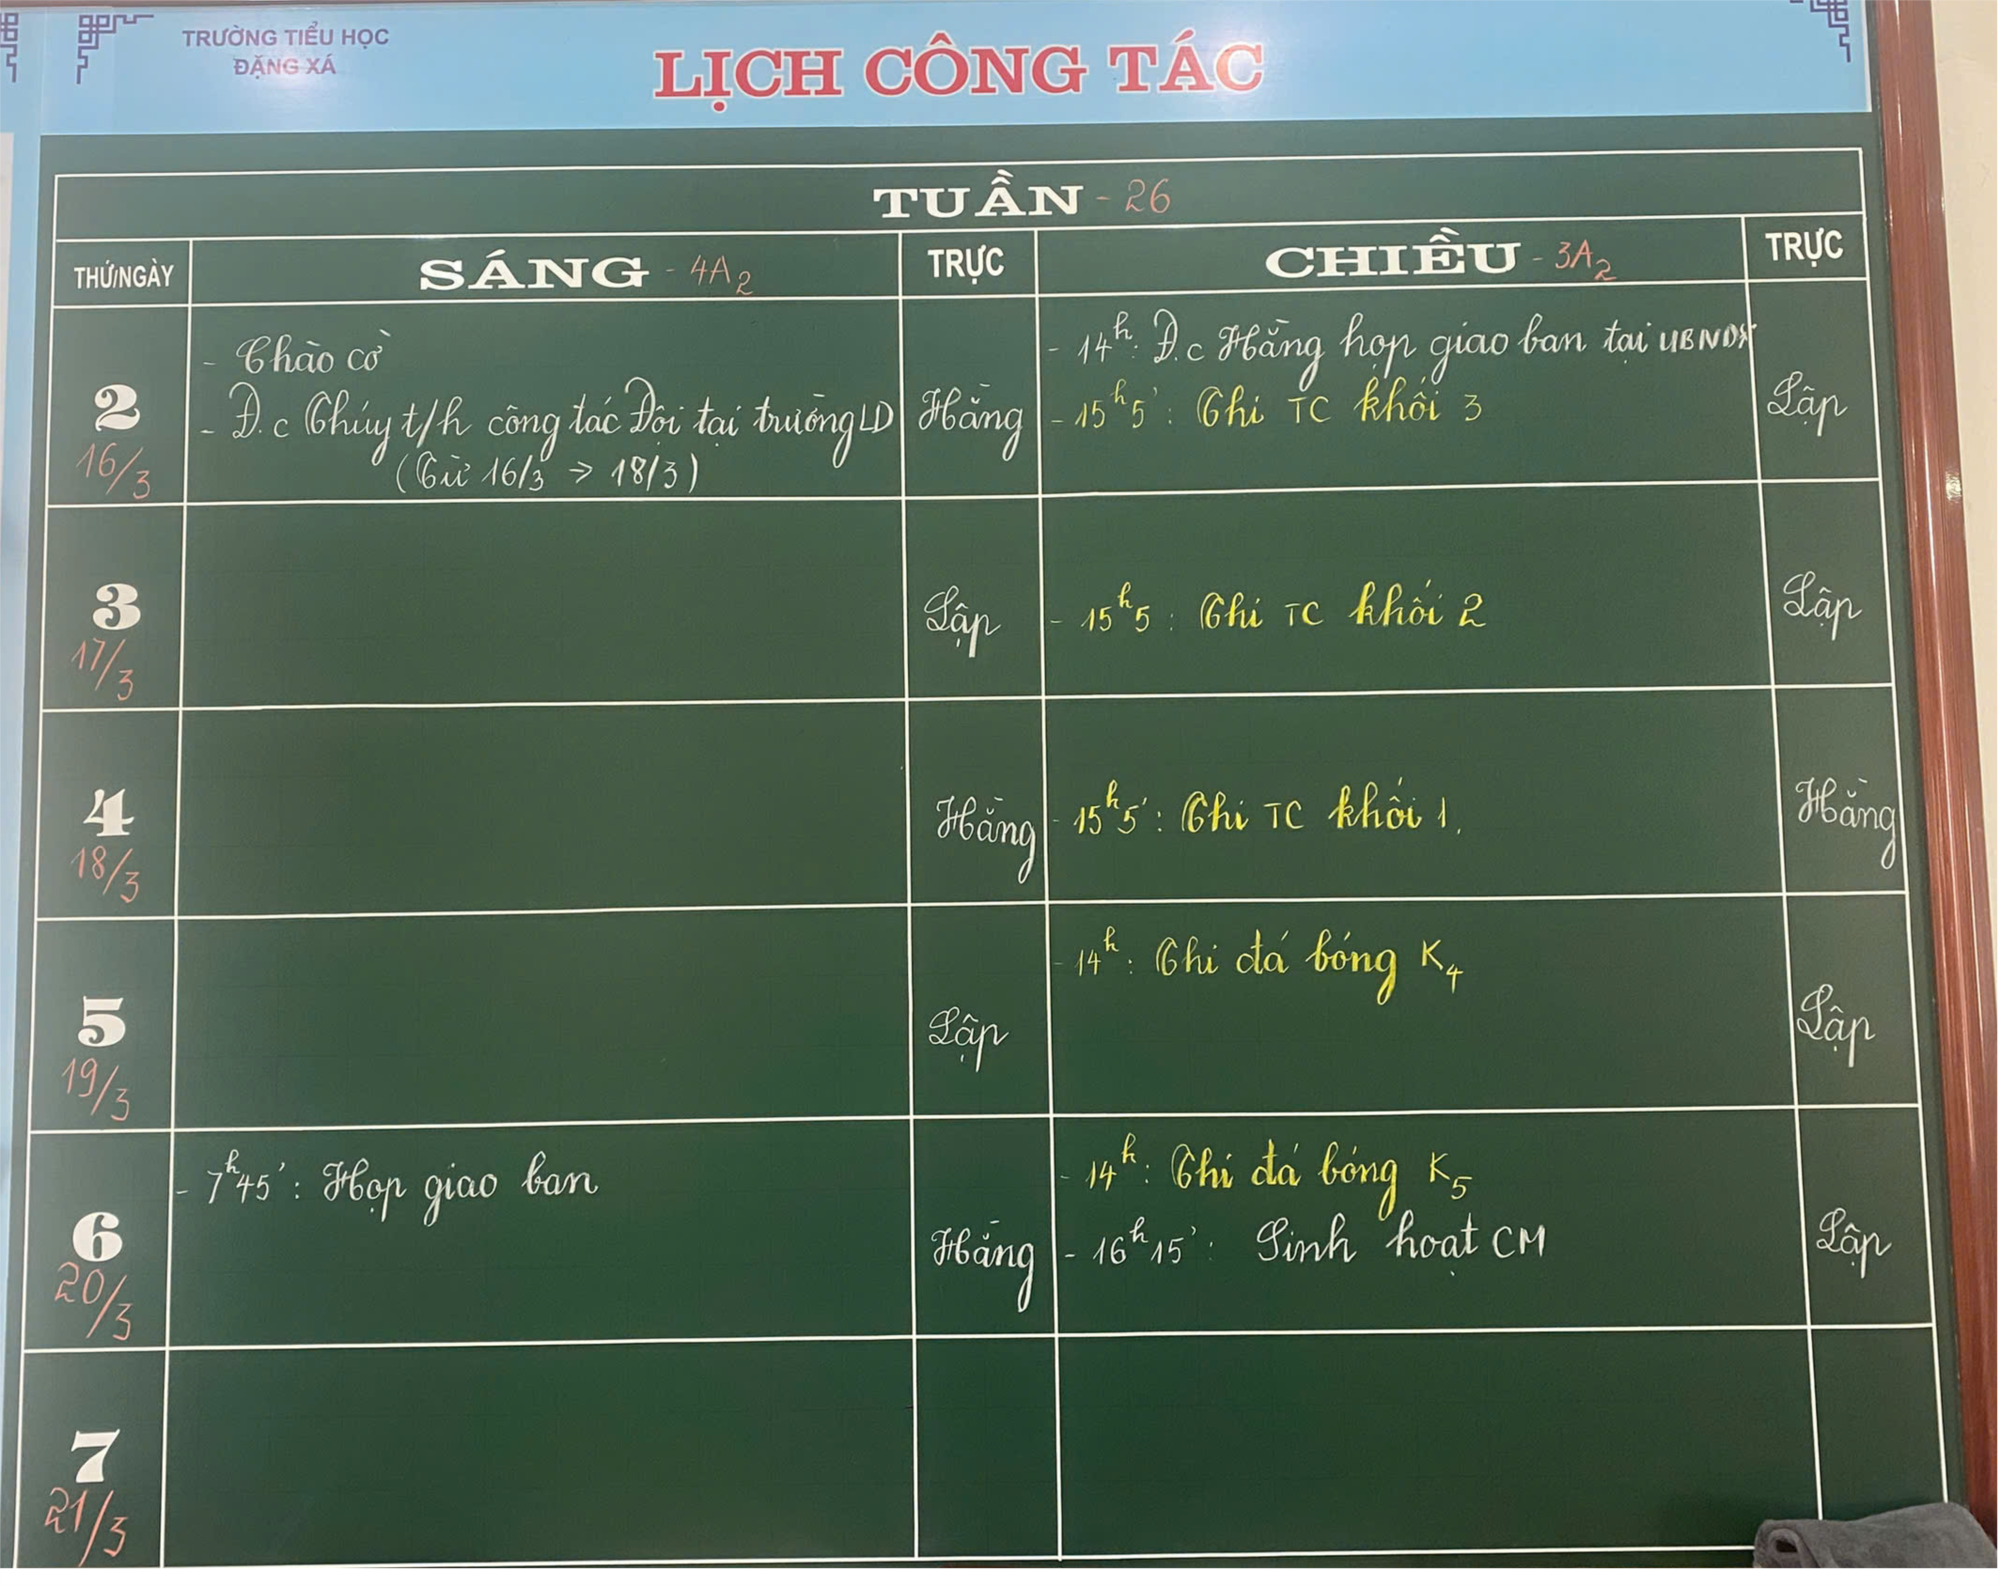 TRƯỜNG TIỂU HỌC
ĐẶNG XÁ
LỊCH CÔNG TÁC
TUẦN - 26
THỨ/NGÀY
SÁNG - 4A2
TRỰC
CHIỀU - 3A2
TRỰC
2
16/3
- Chào cờ
- Đ.c Thúy t/h công tác Đội tại trường LD
(Từ 16/3 → 18/3)
Hằng
- 14h: Đ.c Hằng họp giao ban tại UBNDX
- 15h5': Thi TC khối 3
Lập
3
17/3
Lập
- 15h5: Thi TC khối 2
Lập
4
18/3
Hằng
- 15h5': Thi TC khối 1.
Hằng
5
19/3
Lập
- 14h: Thi đá bóng K4
Lập
6
20/3
- 7h45': Họp giao ban
Hằng
- 14h: Thi đá bóng K5
- 16h15': Sinh hoạt CM
Lập
7
21/3